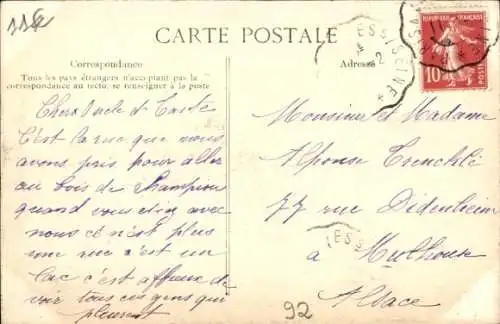 CARTE POSTALE
Correspondance
Tous les pays étrangers n'acceptant pas la
correspondance au recto, se renseigner à la poste
Adresse
RÉPUBLIQUE FRANÇAISE
10
POSTES
ESSISEINE
2
Chers Oncle et Tante
C'est la rue que nous
avons pris pour aller
au bois de Champion
quand vous étiez avec
nous ce n'est plus
une rue c'est un
lac c'est affreux de
voir tous ces gens qui
pleurent
Monsieur et Madame
Alphonse
77 rue Didenheim
à Mulhouse
Alsace
ESS
92